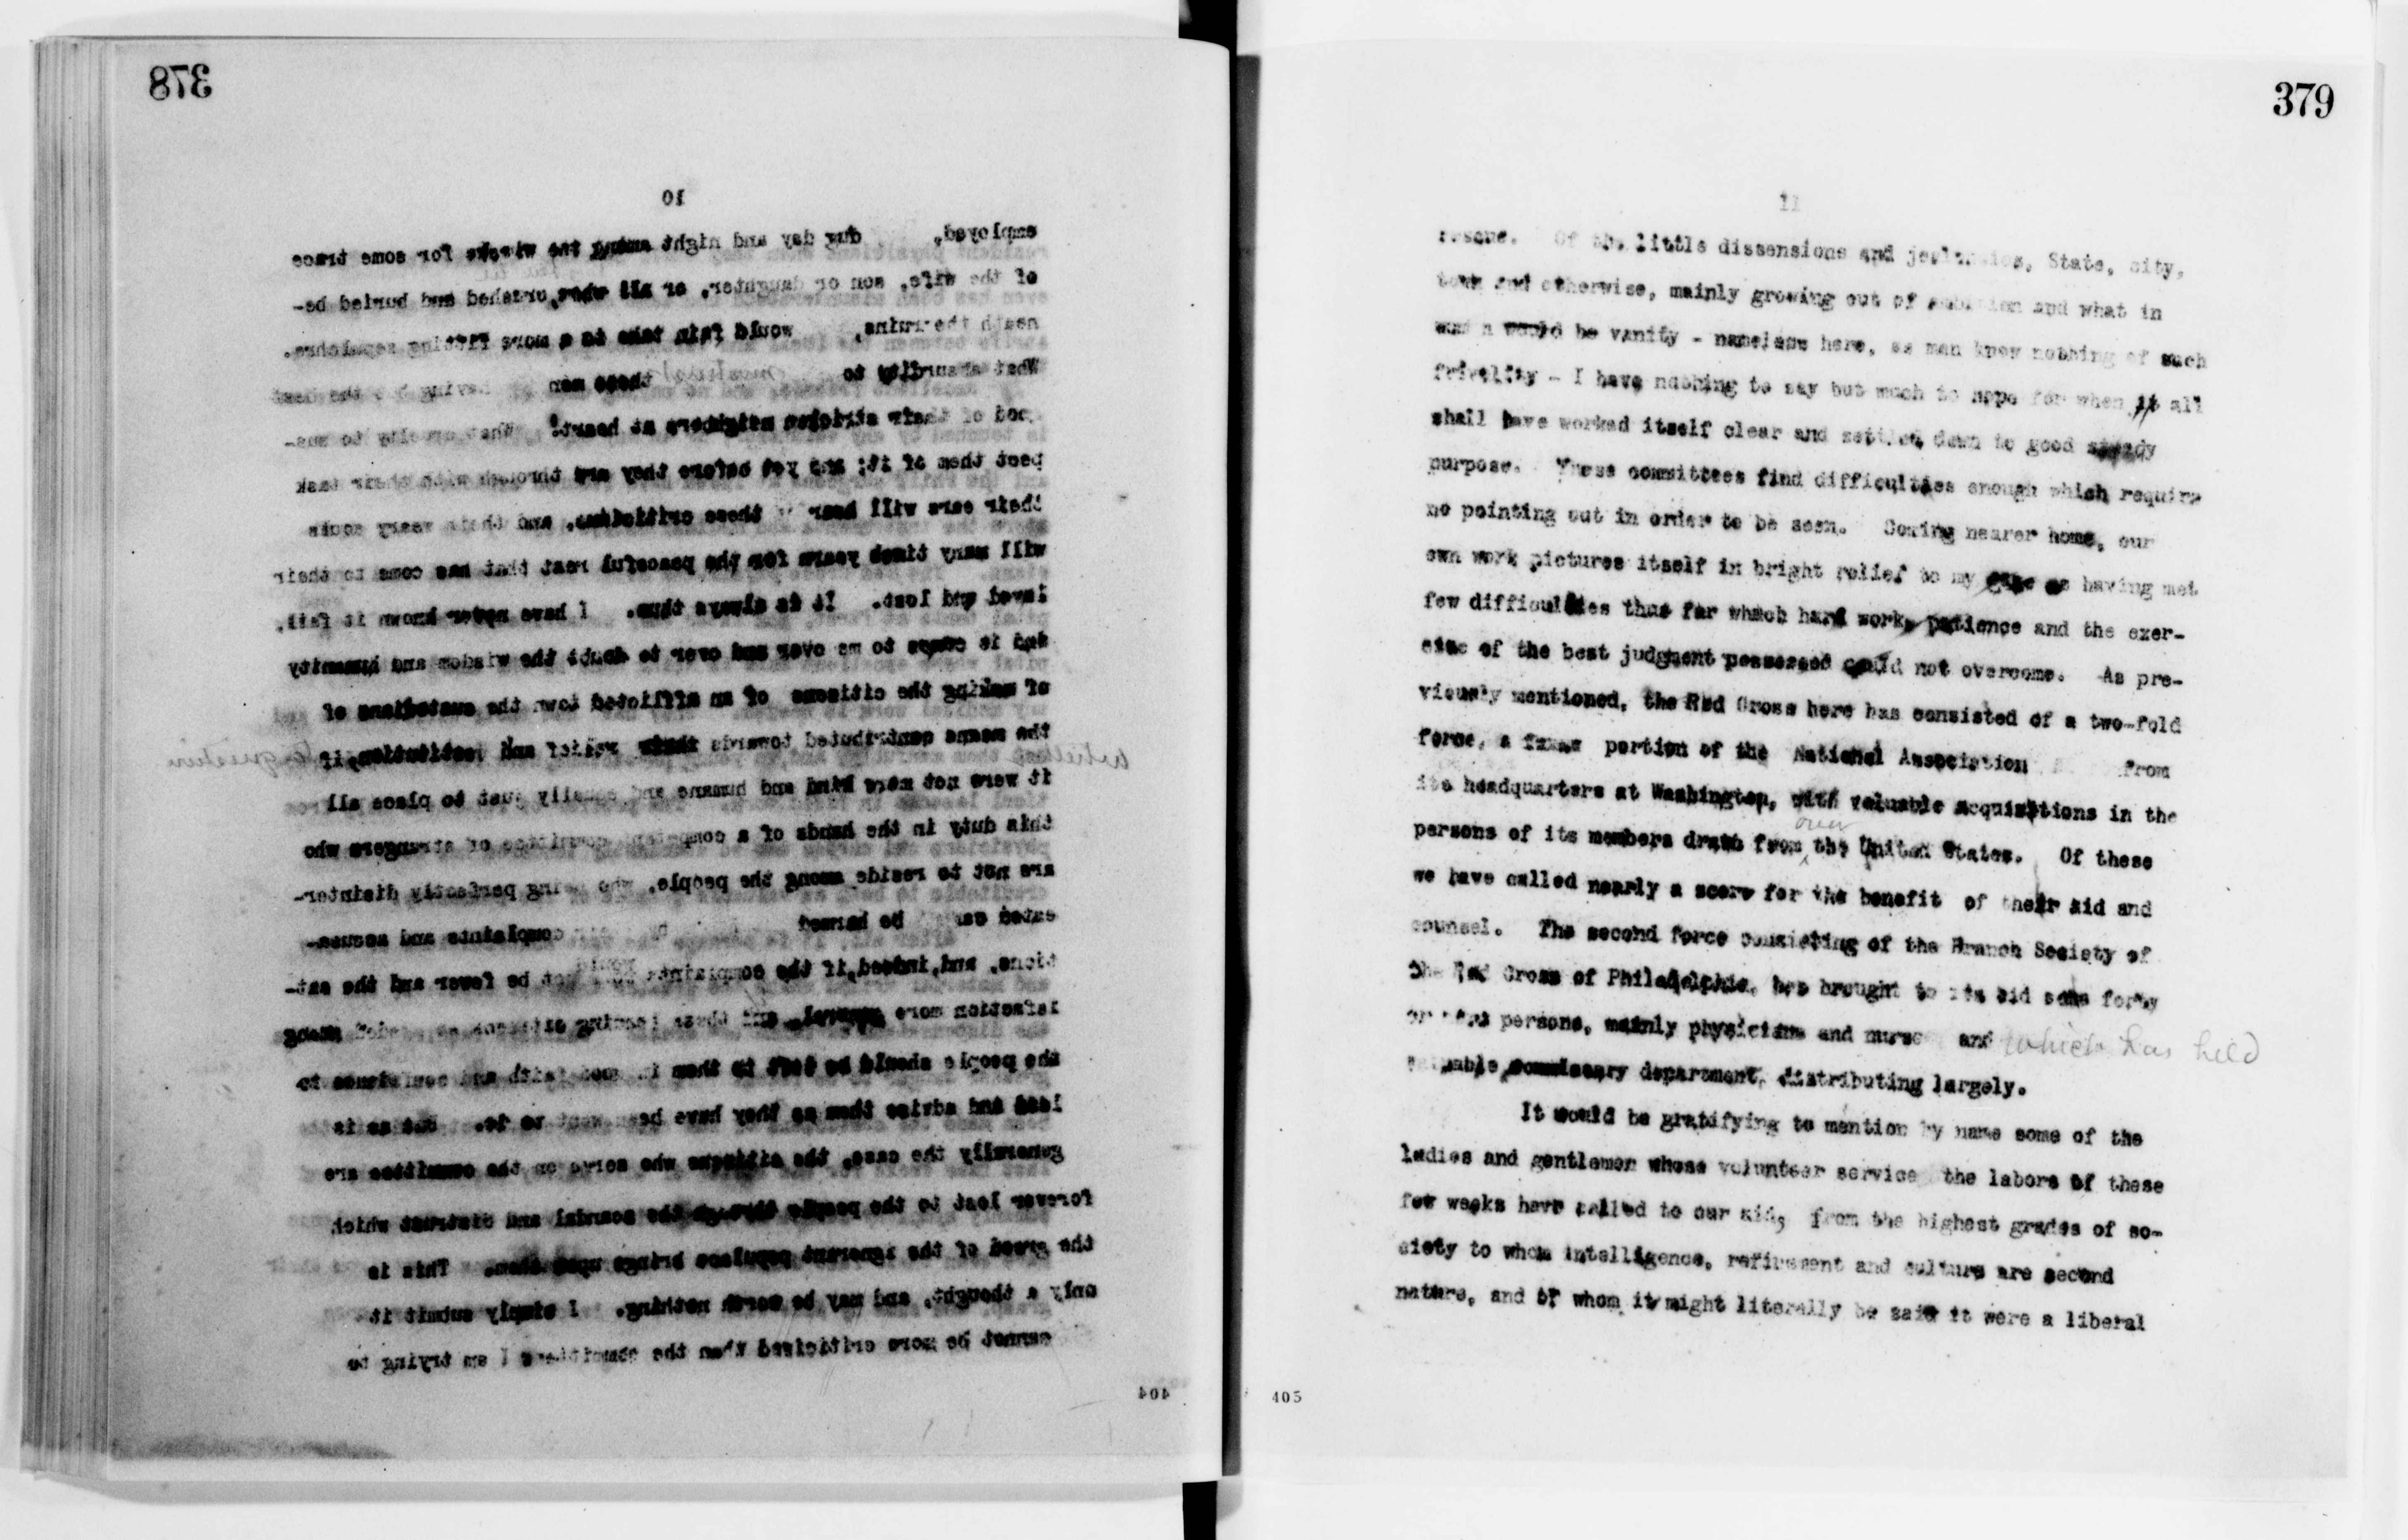 378
10
employed, dug day and night among the wrecks for some trace
of the wife, son or daughter, or all were, crushed and buried be-
neath the ruins, would fain take to a more fitting sepulchre.
What absurdity to these men having the best
good of their stricken neighbors at heart! What cruelty to sus-
pect them of it; and yet before they are through with their task
their ears will hear these criticisms, and their weary souls
will many times yearn for the peaceful rest that has come to their
loved and lost. It is always thus. I have never known it fail,
and it comes to me over and over to doubt the wisdom and humanity
of making the citizens of an afflicted town the custodians of
the means contributed towards their relief and restitution, if
it were not more kind and humane and equally just to place all
this duty in the hands of a competent committee of strangers who
are not to reside among the people, who being perfectly disinter-
ested be harmed complaints and accusa-
tions, and, indeed, if the complaints would not be fewer and the sat-
isfaction more general, and these leading citizens among
the people should be left to them in good faith and confidence to
lead and advise them as they have been wont to do. But as is
generally the case, the citizens who serve on the committee are
forever lost to the people through the scandal and distrust which
the greed of the ignorant populace brings upon them. This is
only a thought, and may be worth nothing. I simply submit it
cannot be more criticized than the committees I am trying to
404
379
11
rescue. Of the little dissensions and jealousies, State, city,
town and otherwise, mainly growing out of ambition and what in
women would be vanity - nameless here, as men know nothing of such
frivolity - I have nothing to say but much to hope for when it all
shall have worked itself clear and settled down to good steady
purpose. These committees find difficulties enough which require
no pointing out in order to be seen. Coming nearer home, our
own work pictures itself in bright relief to my gaze as having met
few difficulties thus far which hard work, patience and the exer-
cise of the best judgment possessed could not overcome. As pre-
viously mentioned, the Red Cross here has consisted of a two-fold
force, a portion of the National Association from
its headquarters at Washington, with valuable acquisitions in the
over
persons of its members drawn from the United States. Of these
we have called nearly a score for the benefit of their aid and
counsel. The second force consisting of the Branch Society of
the Red Cross of Philadelphia, has brought to its aid some forty
or more persons, mainly physicians and nurses and which has held
valuable commissary department, distributing largely.
It would be gratifying to mention by name some of the
ladies and gentlemen whose volunteer service the labors of these
few weeks have called to our aid, from the highest grades of so-
ciety to whom intelligence, refinement and culture are second
nature, and of whom it might literally be said it were a liberal
405